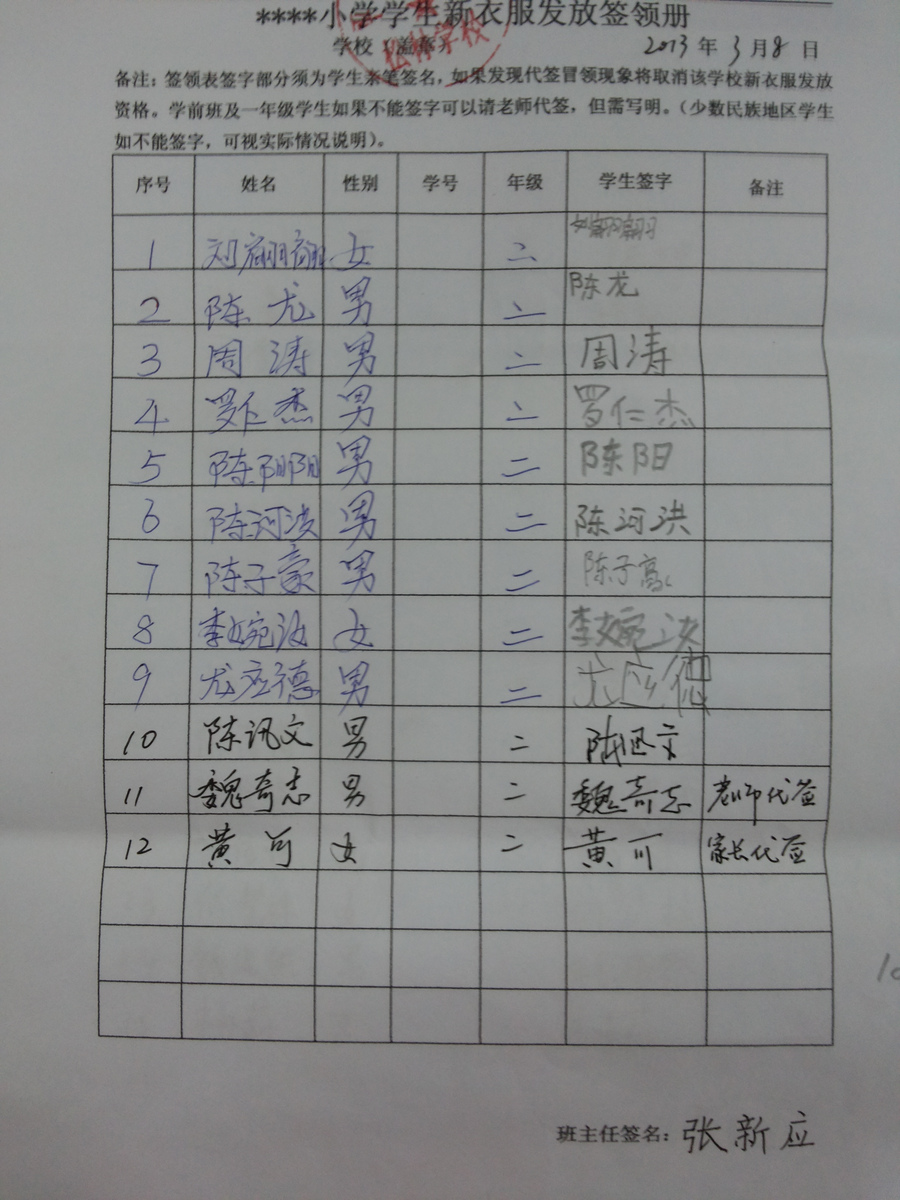 ****小学学生新衣服发放签领册
学校（盖章）
2013年3月8日
备注：签领表签字部分须为学生亲笔签名，如果发现代签冒领现象将取消该学校新衣服发放
资格。学前班及一年级学生如果不能签字可以请老师代签，但需写明。（少数民族地区学生
如不能签字，可视实际情况说明）。
序号 姓名 性别 学号 年级 学生签字 备注
1 刘翩翩 女 二 刘翩翩
2 陈龙 男 二 陈龙
3 周涛 男 二 周涛
4 罗仁杰 男 二 罗仁杰
5 陈阳阳 男 二 陈阳
6 陈河洪 男 二 陈河洪
7 陈子豪 男 二 陈子豪
8 李婉汝 女 二 李婉汝
9 龙应德 男 二 龙应德
10 陈讯文 男 二 陈迅文
11 魏奇志 男 二 魏奇志 老师代签
12 黄可 女 二 黄可 家长代签
班主任签名：张新应